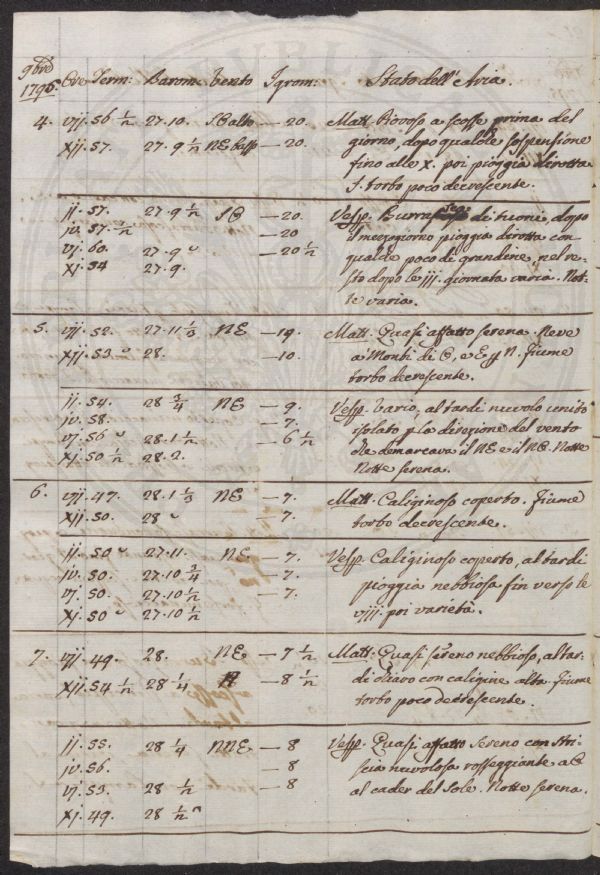 9bre
1796. Ore Term: Barom: Vento Igrom: Stato dell'Aria.
4. vij. 56 ½ 27.10. SE alto — 20. Matt. Piovoso a scosse prima del
xij. 57. 27.9 ½ NE basso — 20. giorno, dopo qualche sospensione
fino alle X. poi pioggia dirotta
F. torbo poco decrescente.
ij. 57. 27.9 ½ SE — 20. Vesp. di tuone, dopo
iv. 57. ½ — 20 il mezzogiorno pioggia dirotta con
vj. 60. 27.9 — 20 ½ qualche poco di grandine, nel re-
xj. 54 27.9. sto dopo le iij. giornata varia. Not-
te varia.
5. vij. 52. 27.11 ⅓ NE — 19. Matt. Quasi affatto serena. Neve
xij. 53 28. — 10. a Monti di E, e E N. Fiume
torbo decrescente.
ij. 54. 28 ¾ NE — 9. Vesp. Vario, al tardi nuvolo unito
iv. 58. — 7. isolato p la direzione del vento
vj. 56 28.1 ½ — 6 ½ che demarcava il NE e il NE. Notte
xj. 50 ½ 28.2. Notte serena.
6. vij. 47. 28.1 ⅓ NE — 7. Matt. Caliginoso coperto. Fiume
xij. 50. 28 — 7. torbo decrescente.
ij. 50 27.11. NE — 7. Vesp. Caliginoso coperto, al tardi
iv. 50. 27.10 ¾ — 7. pioggia nebbiosa fin verso le
vj. 50. 27.10 ½ — 7. viij. poi varietà.
xj. 50 27.10 ½
7. vij. 49. 28. NE — 7 ½ Matt. Quasi sereno nebbioso, al tar-
xij. 54 ½ 28 ¼ — 8 ½ di chiaro con caligine alta. Fiume
torbo poco decrescente.
ij. 55. 28 ¼ NNE — 8 Vesp. Quasi affatto sereno con stri-
iv. 56. — 8 scia nuvolosa rosseggiante a E
vj. 53. 28 ½ — 8 al cader del Sole. Notte serena.
xj. 49. 28 ½